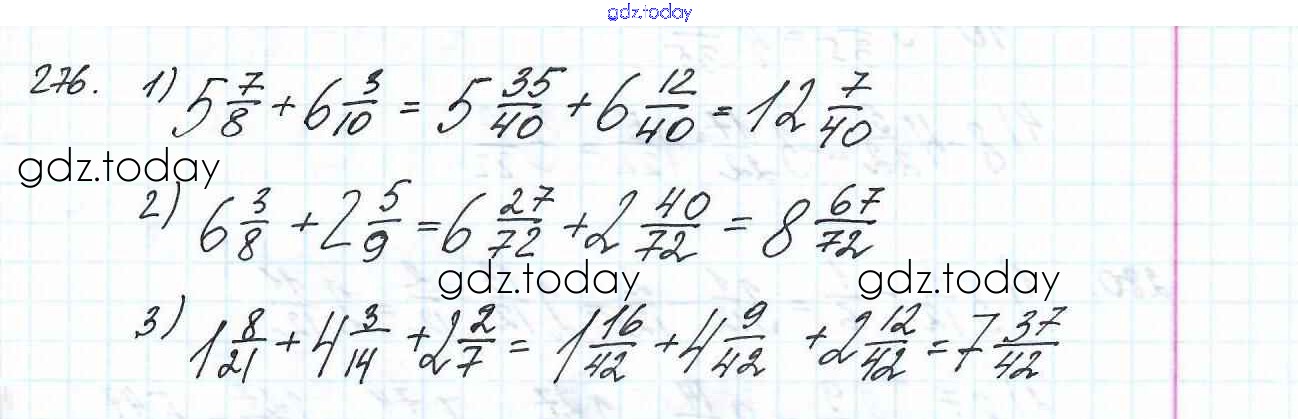 gdz.today
276. 1) 5 7/8 + 6 3/10 = 5 35/40 + 6 12/40 = 12 7/40
gdz.today
2) 6 3/8 + 2 5/9 = 6 27/72 + 2 40/72 = 8 67/72
gdz.today gdz.today
3) 1 8/21 + 4 3/14 + 2 2/7 = 1 16/42 + 4 9/42 + 2 12/42 = 7 37/42
gdz.today